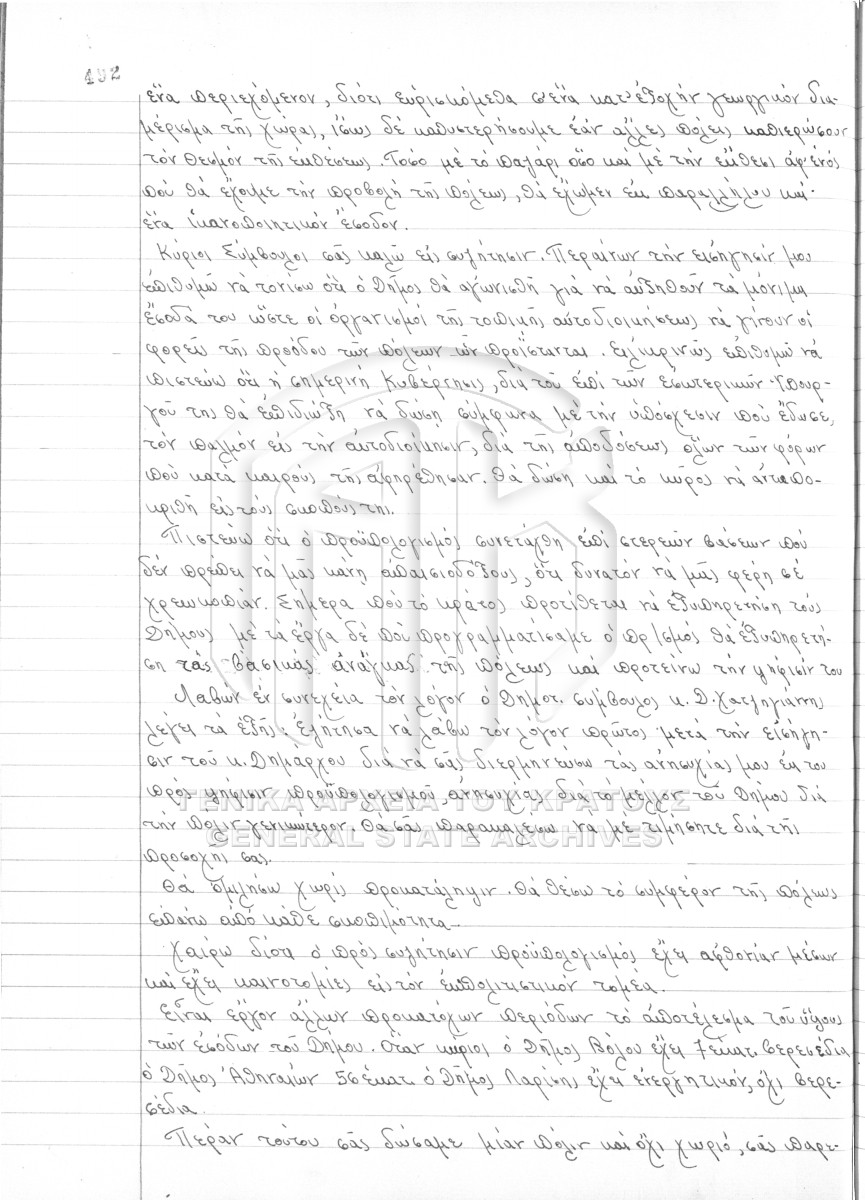 492
ἕνα περιεχόμενον, διότι εὑρισκόμεθα σ' ἕνα κατ' ἐξοχήν γεωργικόν δια-
μέρισμα τῆς χώρας, ἴσως δέ καθυστερήσουμε ἐάν ἄλλες πόλεις καθιερώσουν
τόν θεσμόν τῆς ἐκθέσεως. Τόσο μέ τό παζάρι ὅσο καί μέ τήν ἔκθεσι ἀφ' ἑνός
πού θά ἔχουμε τήν προβολή τῆς πόλεως, θά ἔχωμεν ἐκ παραλλήλου καί
ἕνα ἱκανοποιητικόν ἔσοδον.
Κύριοι Σύμβουλοι σᾶς καλῶ εἰς συζήτησιν. Περαίνων τήν εἰσήγησίν μου
ἐπιθυμῶ νά τονίσω ὅτι ὁ Δῆμος θά ἀγωνισθῆ γιά νά αὐξηθοῦν τά μόνιμα
ἔσοδά του ὥστε οἱ ὀργανισμοί τῆς τοπικῆς αὐτοδιοικήσεως νά γίνουν οἱ
φορεῖς τῆς προόδου τῶν πόλεων ὧν προΐστανται. Εἰλικρινῶς ἐπιθυμῶ νά
πιστεύω ὅτι ἡ σημερινή Κυβέρνησις, διά τοῦ ἐπί τῶν ἐσωτερικῶν Ὑπουρ-
γοῦ της θά ἐπιδιώξη νά δώση σύμφωνα μέ τήν ὑπόσχεσιν πού ἔδωσε,
τόν παλμόν εἰς τήν αὐτοδιοίκησιν, διά τῆς ἀποδόσεως ὅλων τῶν φόρων
πού κατά καιρούς τῆς ἀφηρέθησαν. Θά δώση καί τό κῦρος νά ἀνταπο-
κριθῆ εἰς τούς σκοπούς της.
Πιστεύω ὅτι ὁ προϋπολογισμός συνετάχθη ἐπί στερεῶν βάσεων πού
δέν πρέπει νά μᾶς κάνη ἀπαισιοδόξους, ὅτι δυνατόν νά μᾶς φέρη σέ
χρεωκοπίαν. Σήμερα πού τό κράτος προτίθεται νά ἐξυπηρετήση τούς
Δήμους μέ τά ἔργα δέ πού προγραμματίσαμε ὁ πρ/σμός θά ἐξυπηρετή-
ση τάς βασικάς ἀνάγκας τῆς πόλεως καί προτείνω τήν ψήφισίν του
Λαβών ἐν συνεχεία τόν λόγον ὁ Δημοτ. σύμβουλος κ. Δ. Χατζηγιάννης
λέγει τά ἑξῆς: Ἐζήτησα νά λάβω τόν λόγον πρῶτος μετά τήν εἰσήγη-
σιν τοῦ κ. Δημάρχου διά νά σᾶς διερμηνεύσω τάς ἀνησυχίας μου ἐκ του
πρός ψήφισιν προϋπολογισμοῦ, ἀνησυχίας διά τό μέλλον τοῦ Δήμου διά
τήν πόλιν γενικώτερον. Θά σᾶς παρακαλέσω νά μέ τιμήσητε διά τῆς
προσοχῆς σας.
Θά ὁμιλήσω χωρίς προκατάληψιν. Θά θέσω τό συμφέρον τῆς πόλεως
ἐπάνω ἀπό κάθε σκοπιμότητα.
Χαίρω διότι ὁ πρός συζήτησιν προϋπολογισμός ἔχει ἀφθονίαν μέσων
καί ἔχει καινοτομίες εἰς τόν ἐκπολιτιστικόν τομέα.
Εἶναι ἔργον ἄλλων προκατόχων περιόδων τό ἀποτέλεσμα τοῦ ὕψους
τῶν ἐσόδων τοῦ Δήμου. Ὅταν κύριοι ὁ Δῆμος Βόλου ἔχει 7 ἑκατ. βερεσέδια
ὁ Δῆμος Ἀθηναίων 56 ἑκατ. ὁ Δῆμος Λαρίσης ἔχει ἐνεργητικόν, ὄχι βερε-
σέδια.
Πέραν τούτου σᾶς δώσαμε μίαν πόλιν καί ὄχι χωριό, σᾶς παρε-
ΓΕΝΙΚΑ ΑΡΧΕΙΑ ΤΟΥ ΚΡΑΤΟΥΣ
GENERAL STATE ARCHIVES